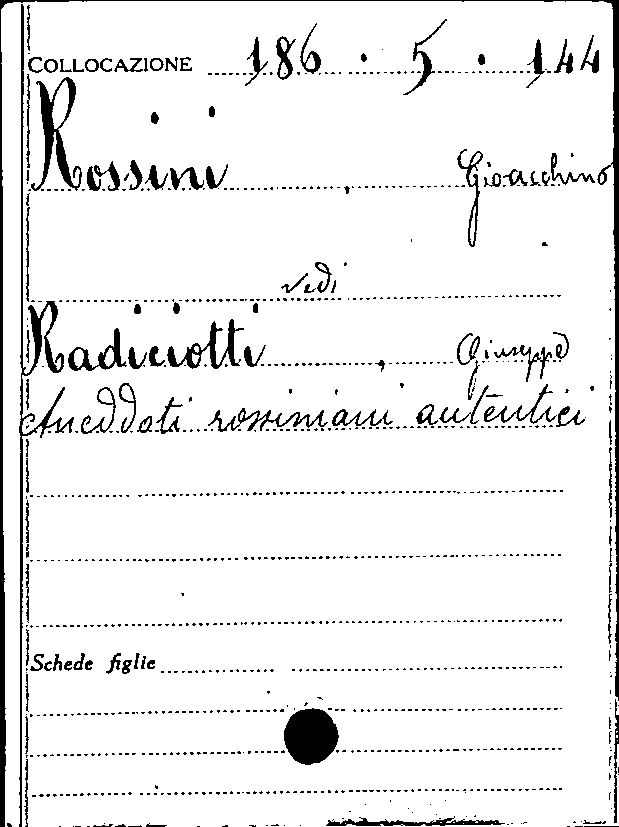 COLLOCAZIONE 186 . 5 . 144
Rossini , Gioacchino
vedi
Radiciotti , Giuseppe
Aneddoti rossiniani autentici
Schede figlie